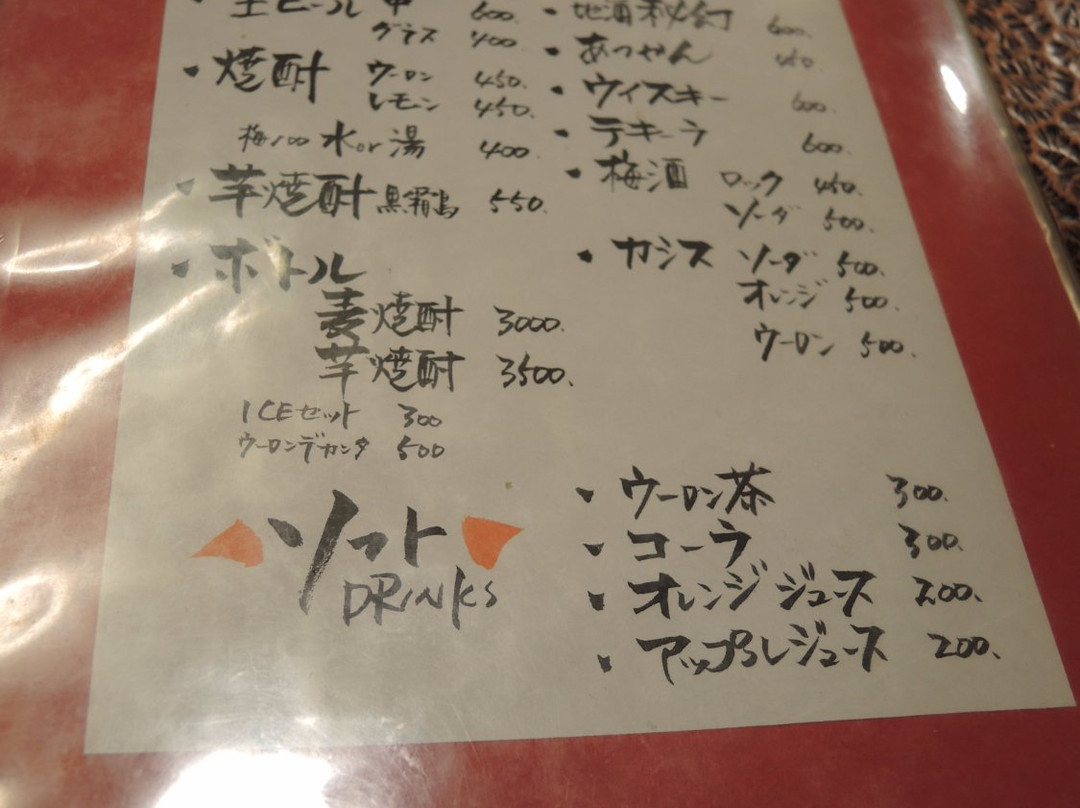 生ビール 中 600.
グラス 400.
・焼酎 ウーロン 450.
レモン 450.
梅100 水or湯 400.
・芋焼酎 黒霧島 550.
・ボトル
麦焼酎 3000.
芋焼酎 3500.
ICEセット 300
ウーロンデカンタ 500
・地酒 600.
・あつかん 450
・ウィスキー 600.
・テキーラ 600.
・梅酒 ロック 450.
ソーダ 500.
・カシス ソーダ 500.
オレンジ 500.
ウーロン 500.
ソフト
DRINKS
・ウーロン茶 300.
・コーラ 300.
・オレンジジュース 200.
・アップルジュース 200.